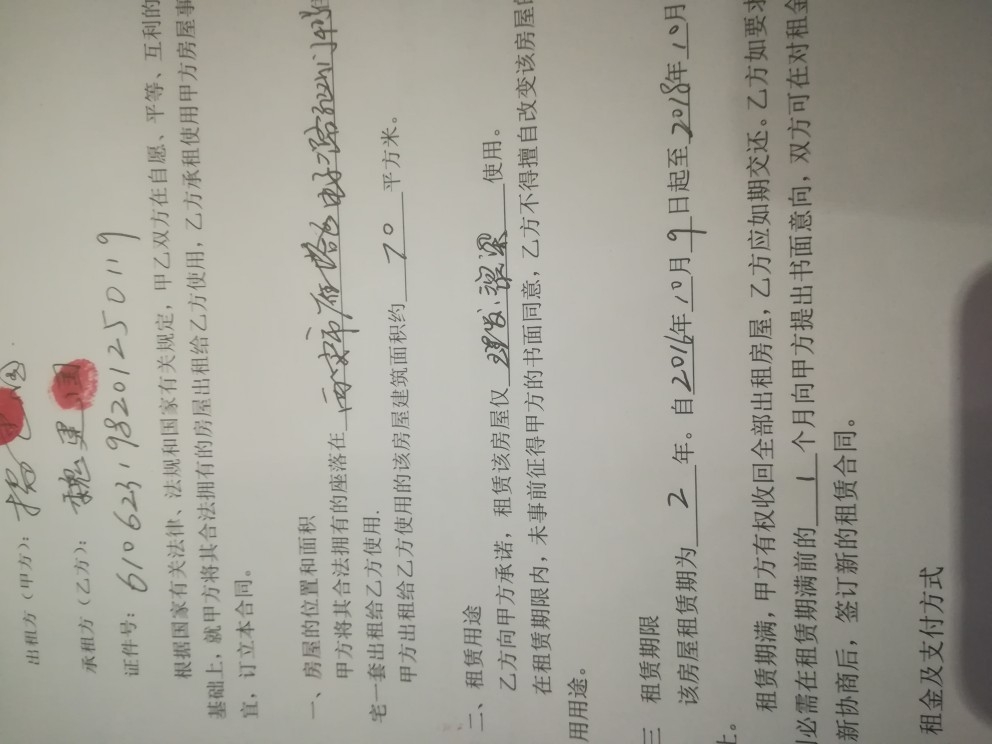 出租方（甲方）：杨
承租方（乙方）：魏
证件号：610623198201250119
根据国家有关法律、法规和国家有关规定，甲乙双方在自愿、平等、互利的
基础上，就甲方将其合法拥有的房屋出租给乙方使用，乙方承租使用甲方房屋事
宜，订立本合同。
一、房屋的位置和面积
甲方将其合法拥有的座落在西安市雁塔区电子路
宅一套出租给乙方使用.
甲方出租给乙方使用的该房屋建筑面积约70平方米。
二、租赁用途
乙方向甲方承诺，租赁该房屋仅使用。
在租赁期限内，未事前征得甲方的书面同意，乙方不得擅自改变该房屋的
用用途。
三 租赁期限
该房屋租赁期为2年。自2016年10月9日起至2018年10月
止。
租赁期满，甲方有权收回全部出租房屋，乙方应如期交还。乙方如要求
必需在租赁期满前的1个月向甲方提出书面意向，双方可在对租金
新协商后，签订新的租赁合同。
租金及支付方式